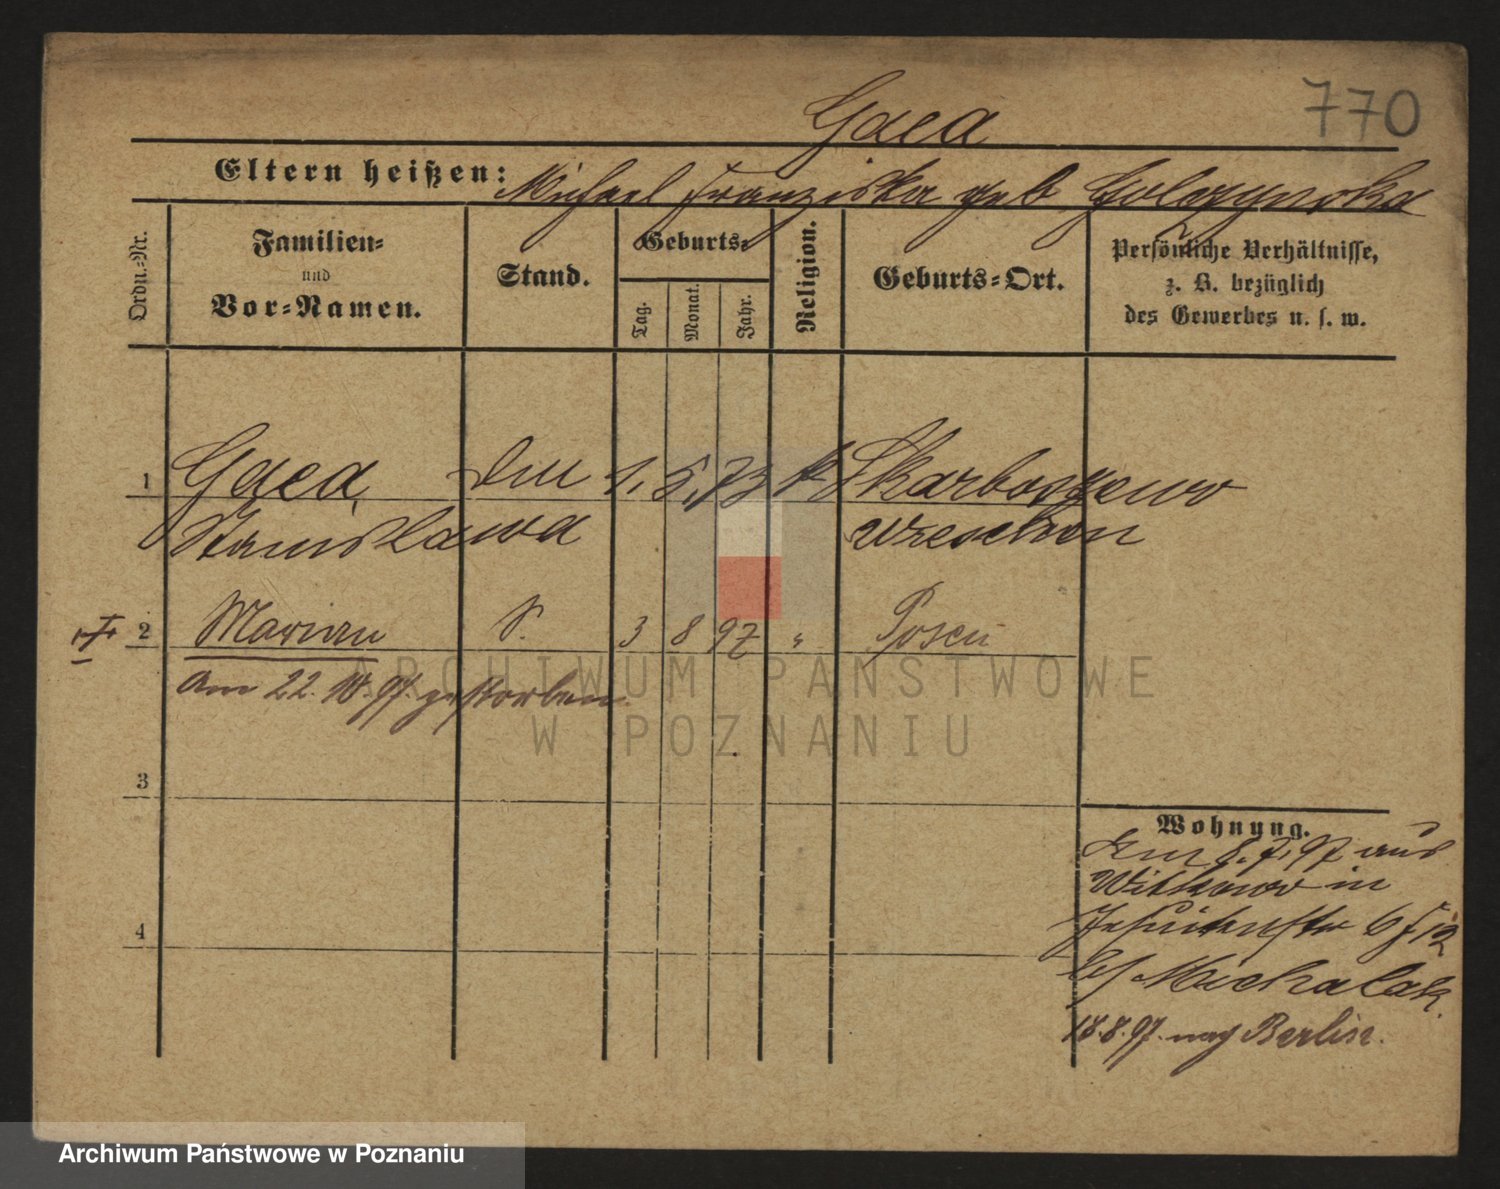 770
Gaca
Eltern heißen: Michael Franziska geb Golczynska
Ordn.-Nr.
Familien-
und
Vor-Namen.
Stand.
Geburts-
Tag.
Monat.
Jahr.
Religion.
Geburts-Ort.
Persönliche Verhältnisse,
z. B. bezüglich
des Gewerbes u. s. w.
1 Gaca, 1. 5. 73 k Skarboszewo
Stanislawa Wreschen
2 Marian S. 3 8 97 " Posen
Am 22. 10. 97. gestorben.
3
4
Wohnung.
Den 8. 7. 97 aus
Witkowo in
Jesuitenstr 6 12
bei Michalak.
18.8.97. nach Berlin.
ARCHIWUM PAŃSTWOWE
W POZNANIU
Archiwum Państwowe w Poznaniu